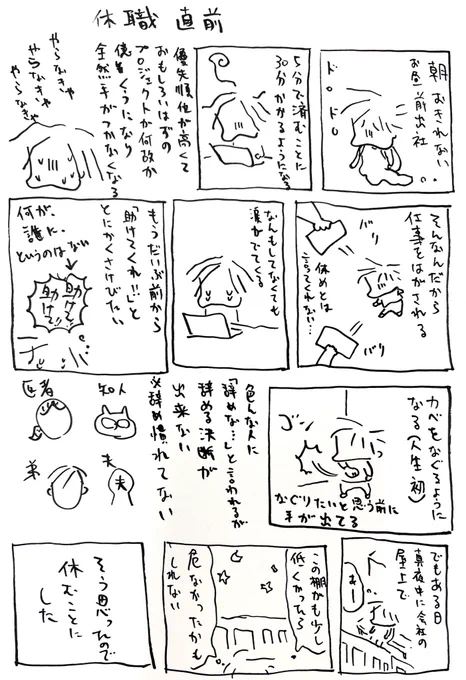 休職 直前
朝 おきれない
お昼前出社
ドロドロ
5分で済むことに
30分かかるようになる
優先順位が高くて
おもしろいはずの
プロジェクトが何故か
億劫くうになり
全然手がつかなくなる
やらなきゃ
やらなきゃ
やらなきゃ
そんなんだから
仕事をはがされる
バリ
休めとは
言ってくれない…
バリ
なんもしてなくても
涙がでてくる
もうだいぶ前から
「助けてくれ!!」と
とにかくさけびたい
何が、
誰に、
というのはない
助けて!!
助けて!!
カベをなぐるように
なる(人生初)
ゴッ
なぐりたいと思う前に
手が出てる
色んな人に
「辞めな…」と言われるが
辞める決断が
出来ない
※辞め慣れてない
知人
医者
夫
弟
でもある日
真夜中に会社の
屋上で
あー
この棚がも少し
低くかったら
危なかったかも
しれない
そう思ったので
休むことに
した